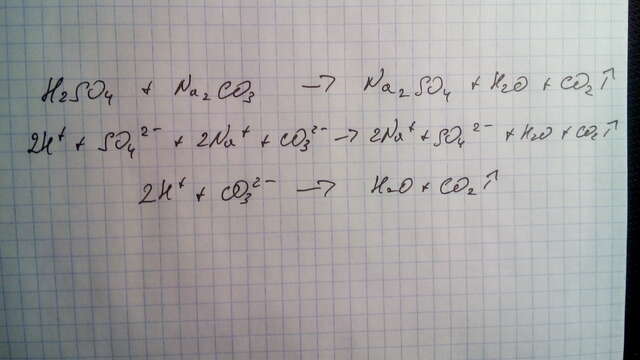 H₂SO₄ + Na₂CO₃ → Na₂SO₄ + H₂O + CO₂↑
2H⁺ + SO₄²⁻ + 2Na⁺ + CO₃²⁻ → 2Na⁺ + SO₄²⁻ + H₂O + CO₂↑
2H⁺ + CO₃²⁻ → H₂O + CO₂↑